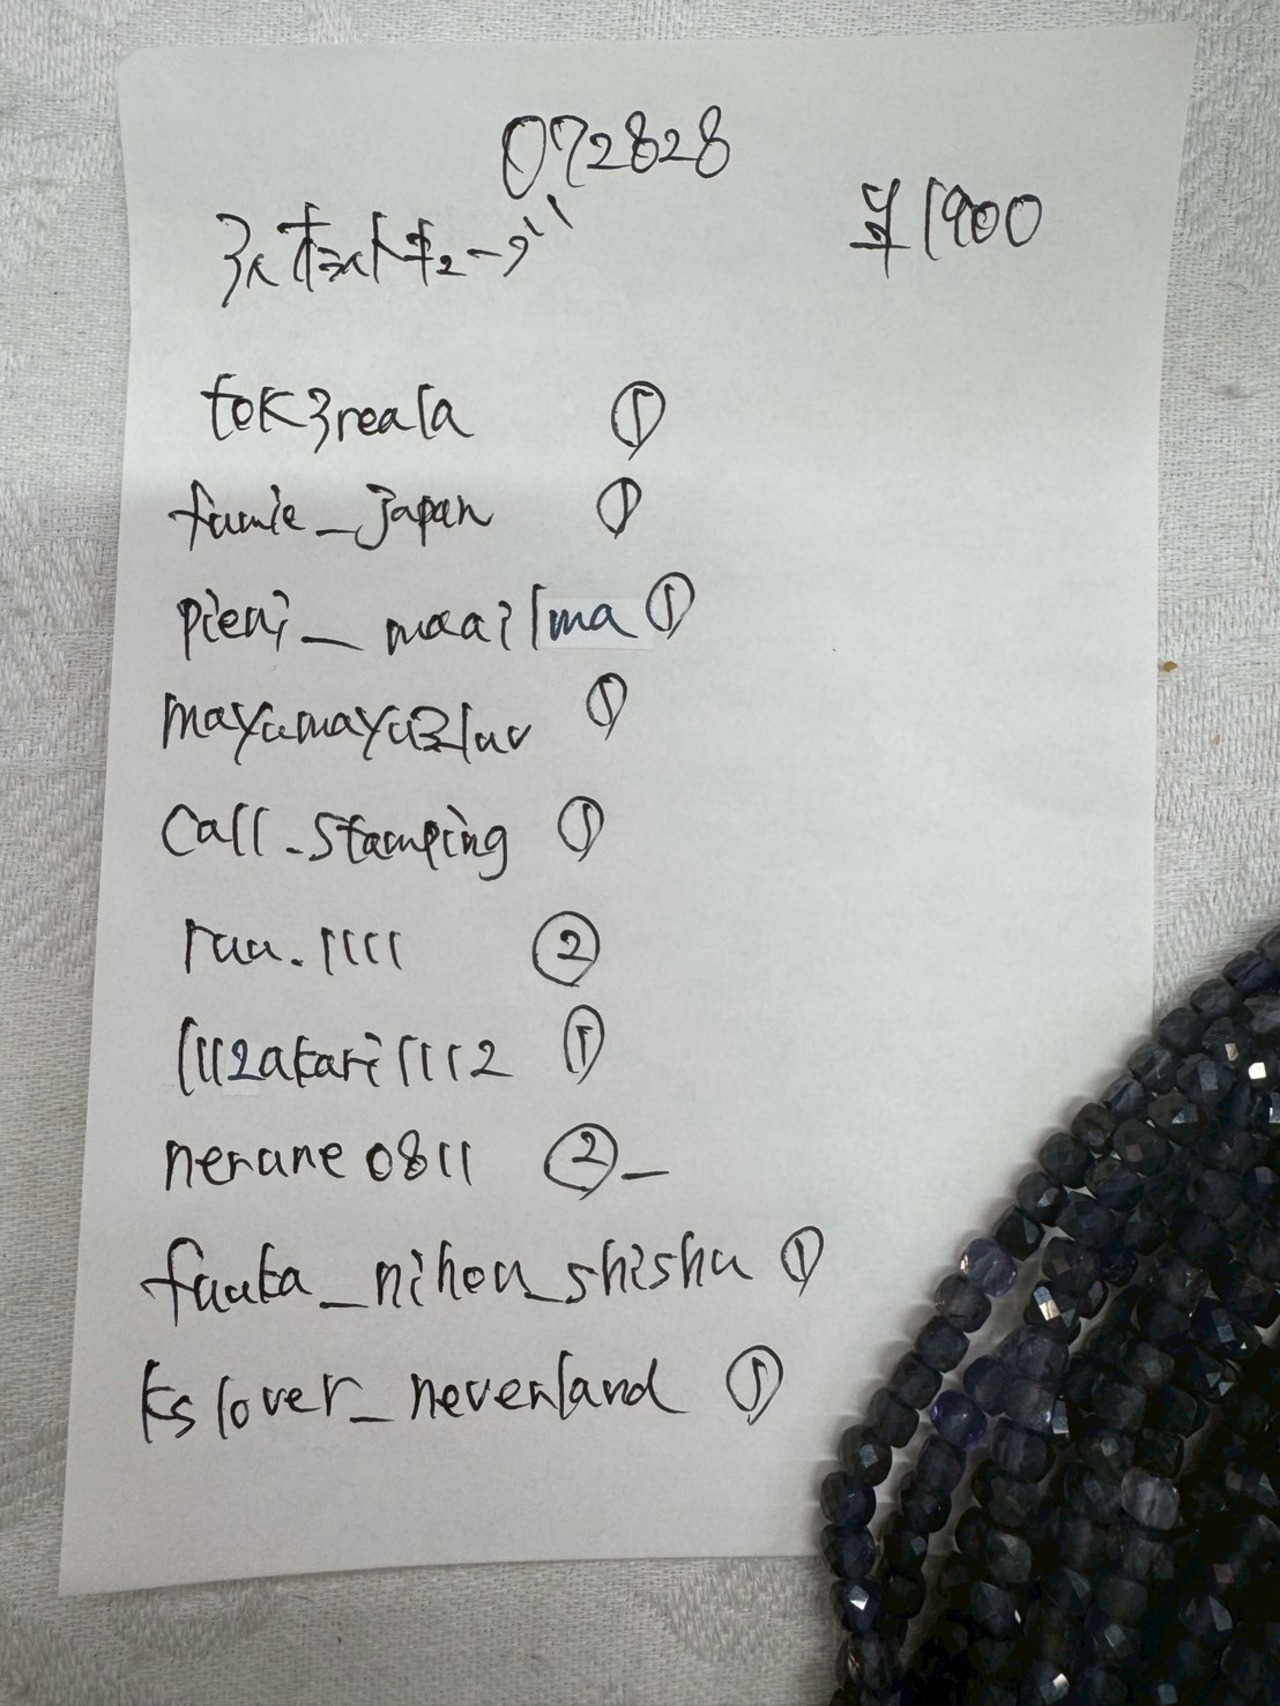 072828
¥1900
tok3reala ①
fumie_japan ①
pieni_maailma ①
mayumayu31uv ①
call.stamping ①
ruu.1111 ②
1112akari1112 ①
nerune0811 ②_
fuuka_nihon_shishu ①
kslover_neverland ①